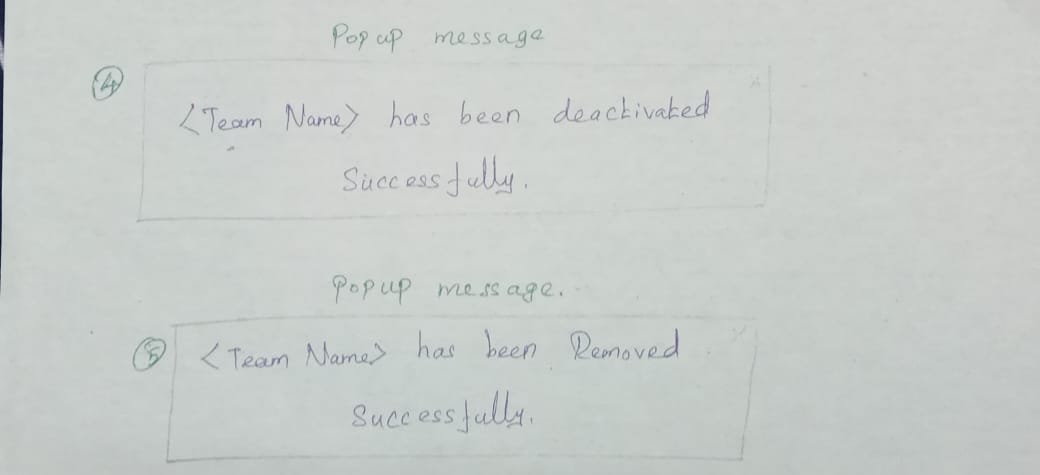 Popup message
4
<Team Name> has been deactivated
Successfully.
Popup message.
5
<Team Name> has been Removed
Successfully.